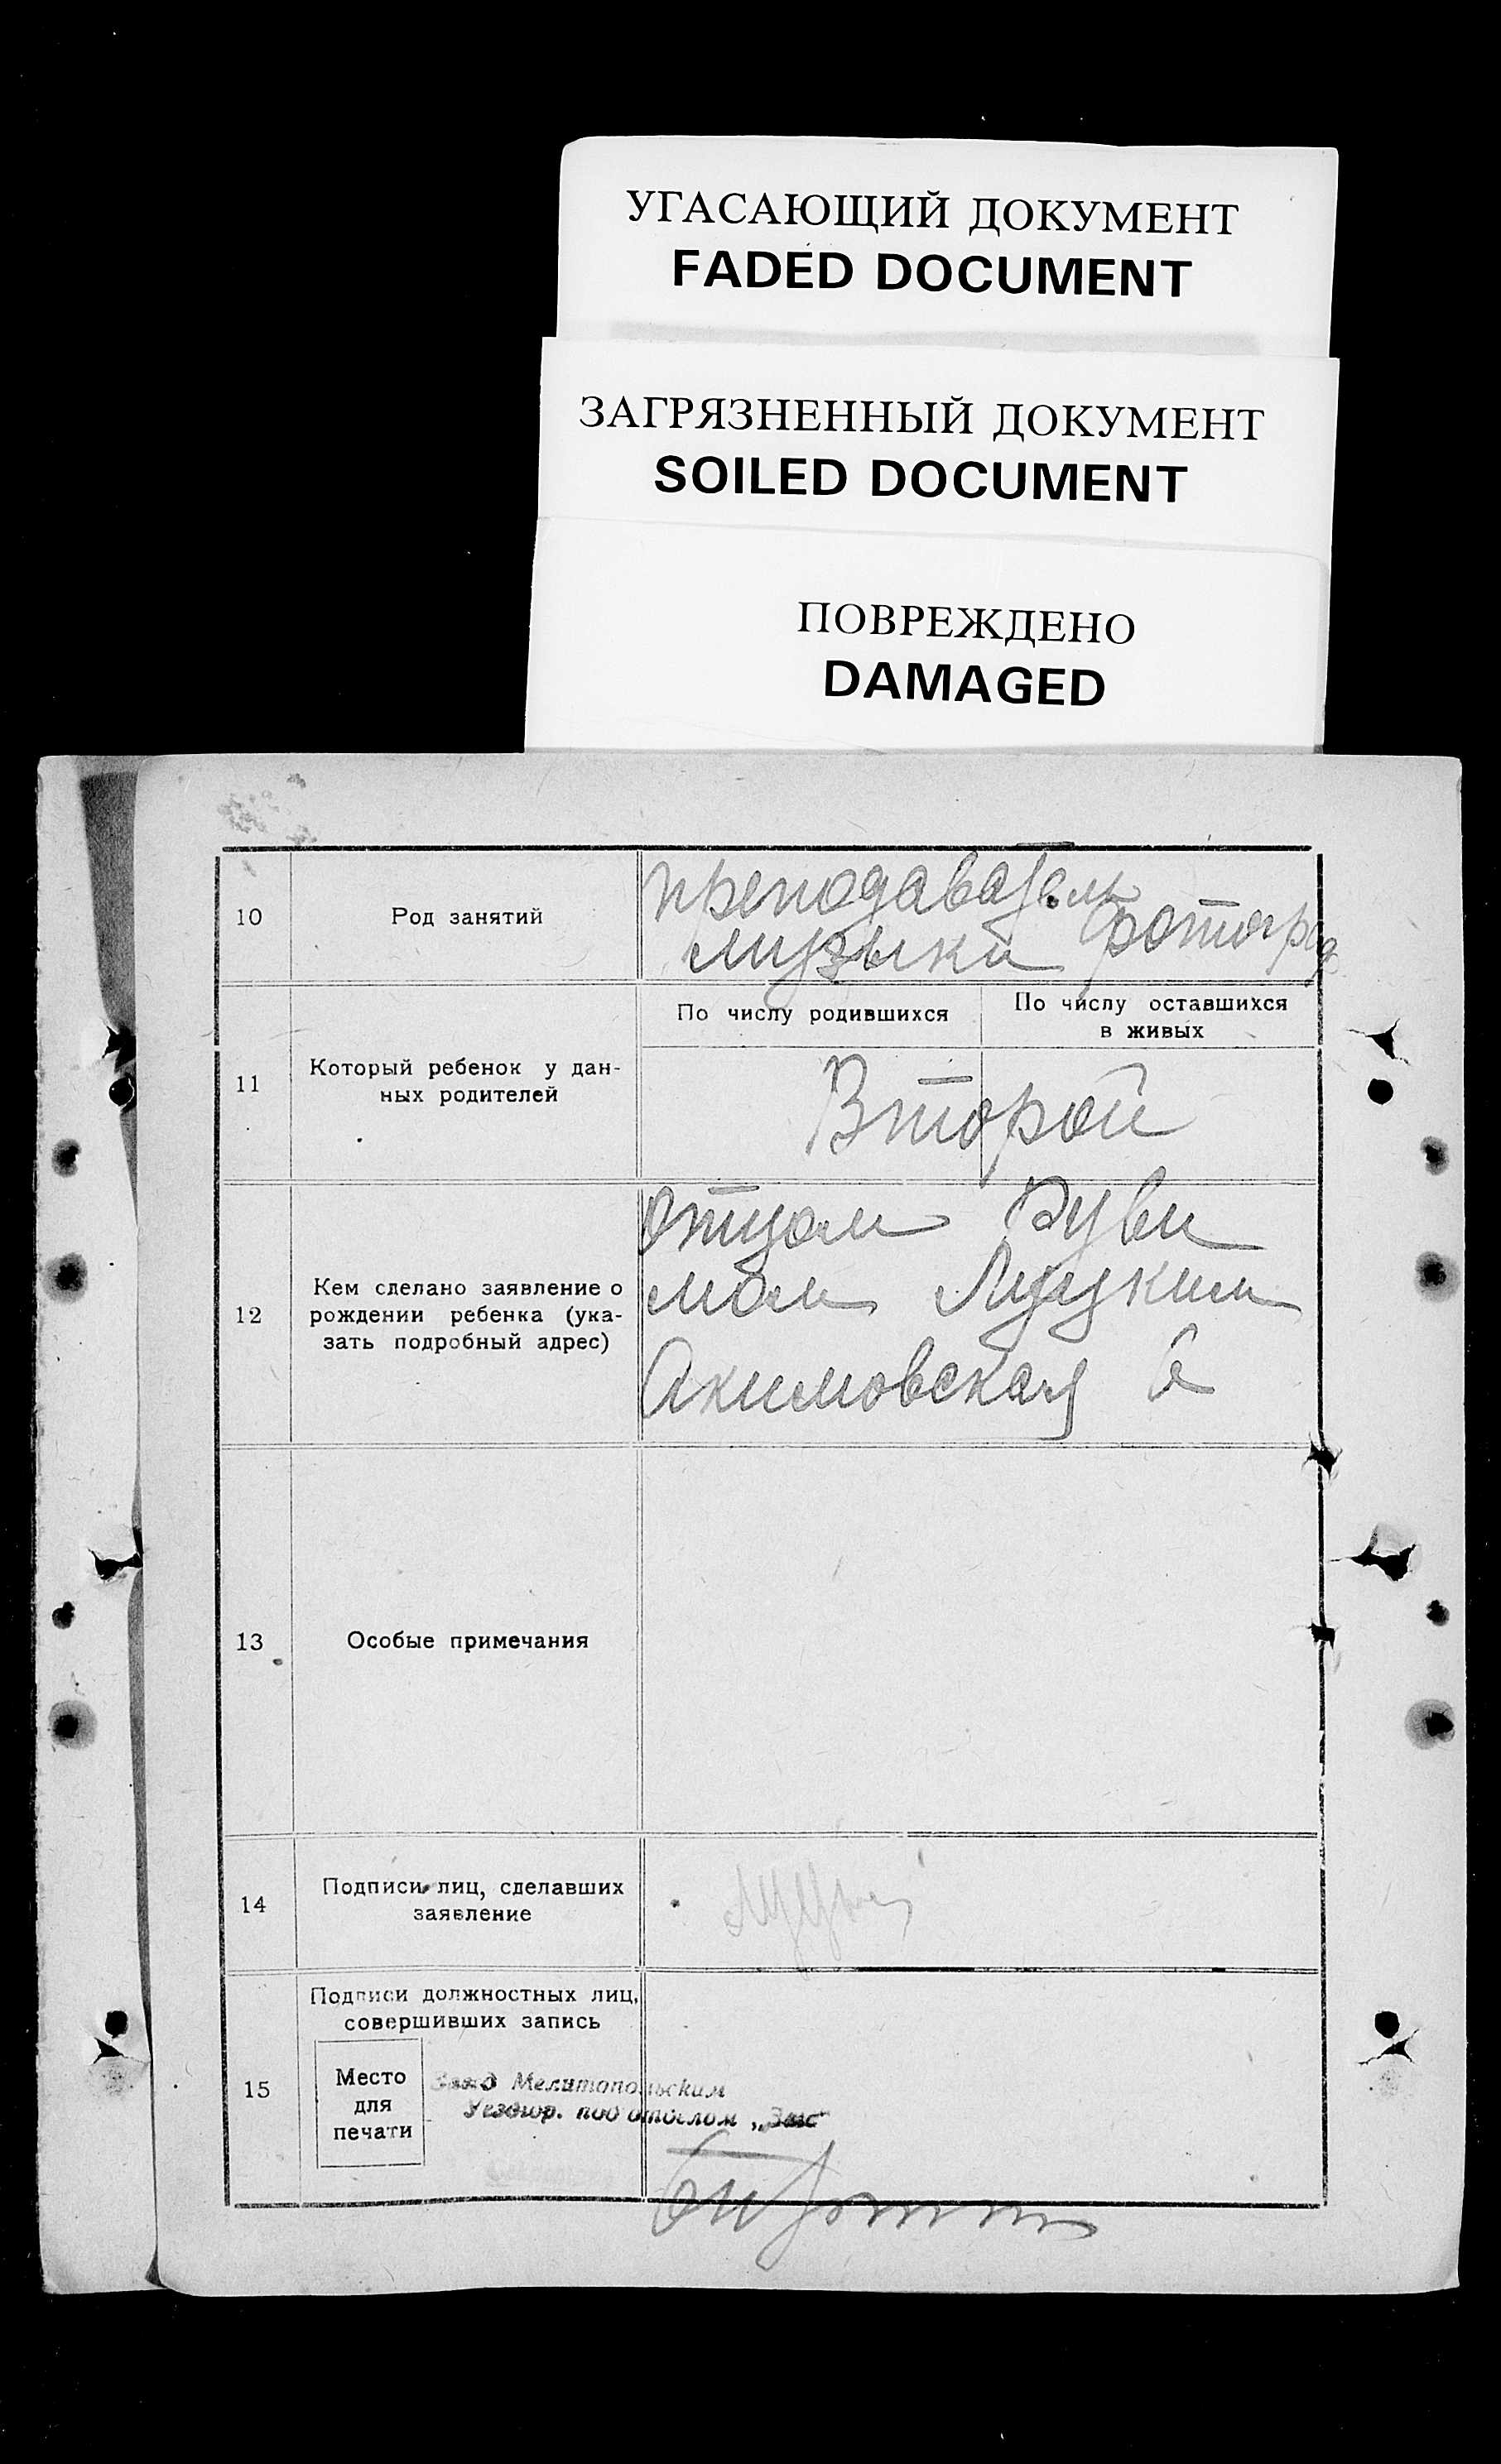 УГАСАЮЩИЙ ДОКУМЕНТ
FADED DOCUMENT
ЗАГРЯЗНЕННЫЙ ДОКУМЕНТ
SOILED DOCUMENT
ПОВРЕЖДЕНО
DAMAGED
10
Род занятий
преподаватель
музыки фотограф
11
Который ребенок у дан-
ных родителей
По числу родившихся
По числу оставшихся
в живых
Второй
12
Кем сделано заявление о
рождении ребенка (ука-
зать подробный адрес)
отцом Руви
мом Луцким
Акимовская 6
13
Особые примечания
14
Подписи лиц, сделавших
заявление
15
Подписи должностных лиц,
совершивших запись
Место
для
печати
Мелитопольским
Уездгор. подотделом „Загс“